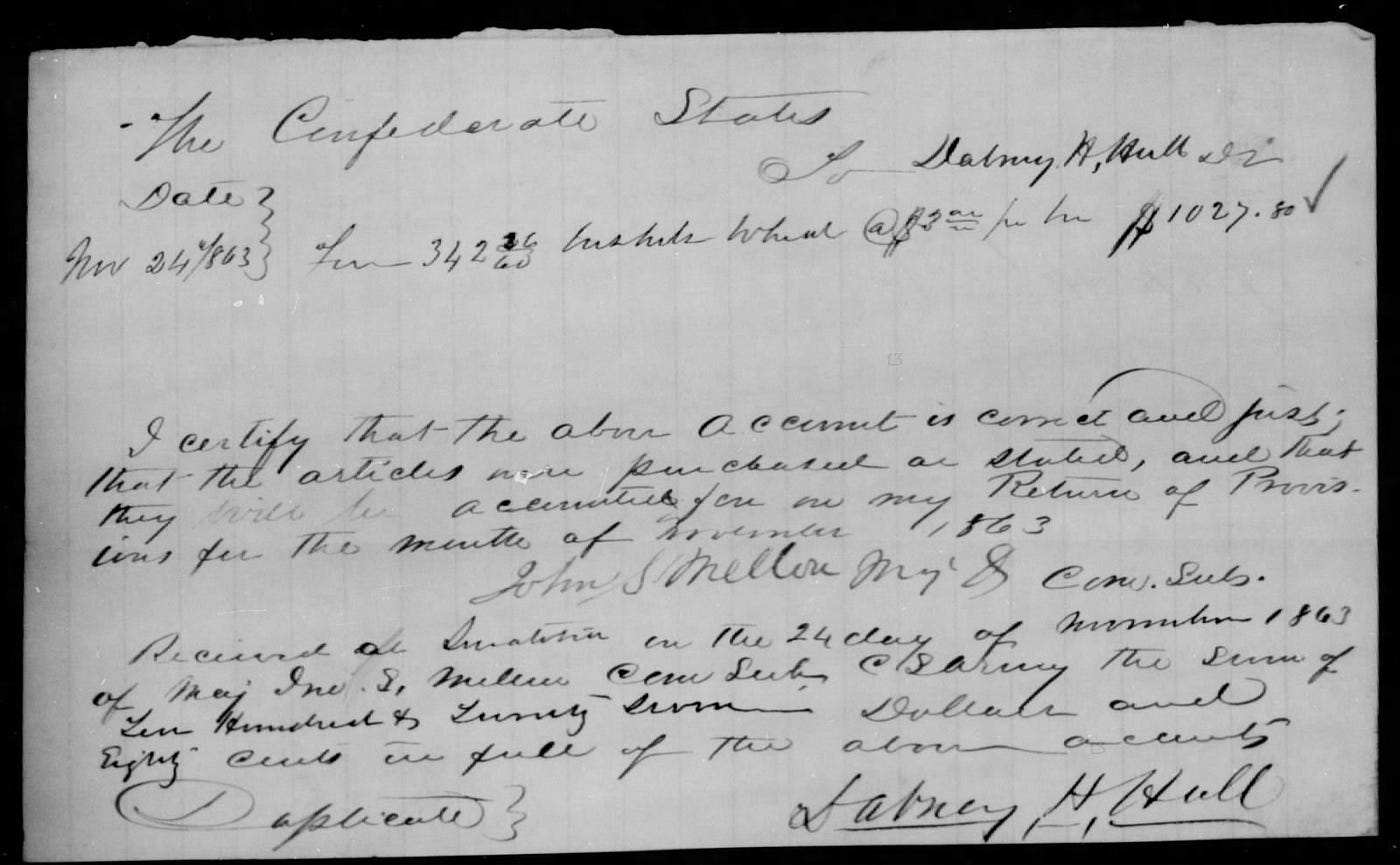 The Confederate States
To Dabney, H, Hull Dr
Date
Nov 24th/863 For 342 36/60 bushels Wheat @ $3 00 per bu $1027.80 ✓
I certify that the above account is correct and just;
that the articles were purchased as stated, and that
they will be accounted for on my Return of Provis-
ions for the month of november 1863
John S Mellon Maj & Com. Subs.
Received at on the 24 day of November 1863
of Maj Jno. S. Mellon Com Subs C S Army the sum of
Ten Hundred & Twenty Seven Dollars and
Eighty cents in full of the above accounts
Duplicate
Dabney, H, Hull